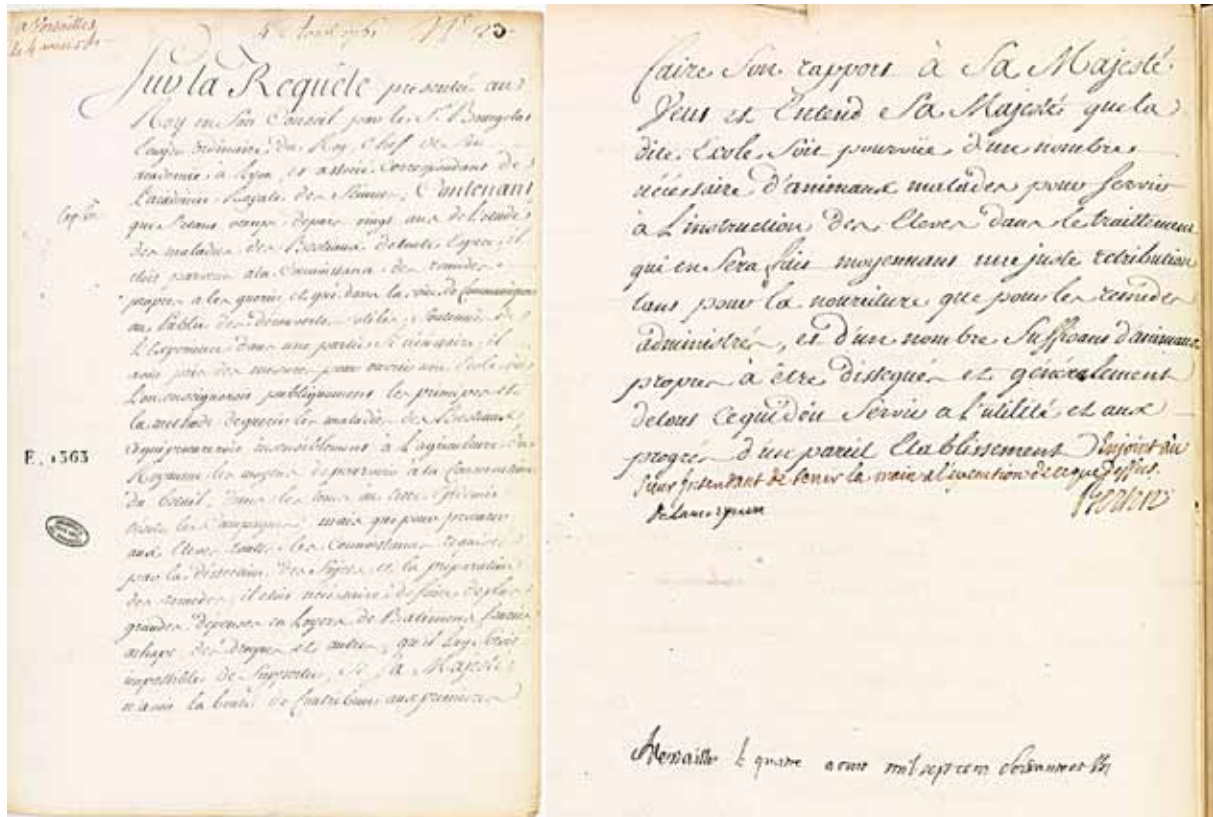 a Versailles
le 4 aoust 1761
4 Aoust 1761 N.º 23
Sur la Requête présentée au
Roy en Son Conseil par le S.r Bourgelat
Ecuyer ordinaire du Roy, Chef de Son
académie à Lyon, et associé Correspondant de
L'académie Royale des Sciences, Contenant
que s'étant occupé depuis vingt ans de l'étude
des maladies des Bestiaux de toute Espèce, il
étoit parvenu à la Connoissance des remèdes
propres à les guérir et que dans la vüe de Communiquer
au Public des découvertes utiles, Soutenues de
L'Expérience dans une partie Si nécessaire, il
avoit pris des mesures pour ouvrir une Ecole où
L'on enseigneroit publiquement les principes et
la méthode de guérir les maladies des Bestiaux,
ce qui procureroit insensiblement à L'agriculture du
Royaume les moyens de pourvoir à la Conservation
du Bétail, dans les tems où cette Epidémie
les Campagnes, mais que pour procurer
aux Elèves toutes les Connoissances requises
par la dissection des Sujets et la préparation
des remèdes, il étoit nécessaire de faire de plus
grandes dépenses en Loyers de Bâtimens,
achapt de drogues et autres, qu'il Luy étoit
impossible de Supporter, Si Sa Majesté
n'avoit la bonté de Contribuer aux premières
E. 1363
faire Son rapport à Sa Majesté.
Veut et Entend Sa Majesté que la
dite Ecole Soit pourvüe d'un nombre
nécessaire d'animaux malades pour Servir
à L'instruction des Eleves dans le traittement
qui en Sera fait moyennant une juste retribution
tant pour la nouriture que pour les remèdes
administrés, et d'un nombre Suffisant d'animaux
propres à être disséqués et généralement
de tout ce qui doit Servir a l'utilité et aux
progrés d'un pareil Etablissement Enjoint au
Sieur Intendant de tenir la main a l'execution de ce que Dessus.
De Lamoignon
Bertin
A Versailles le quatre aoust mil sept cent soixante et un